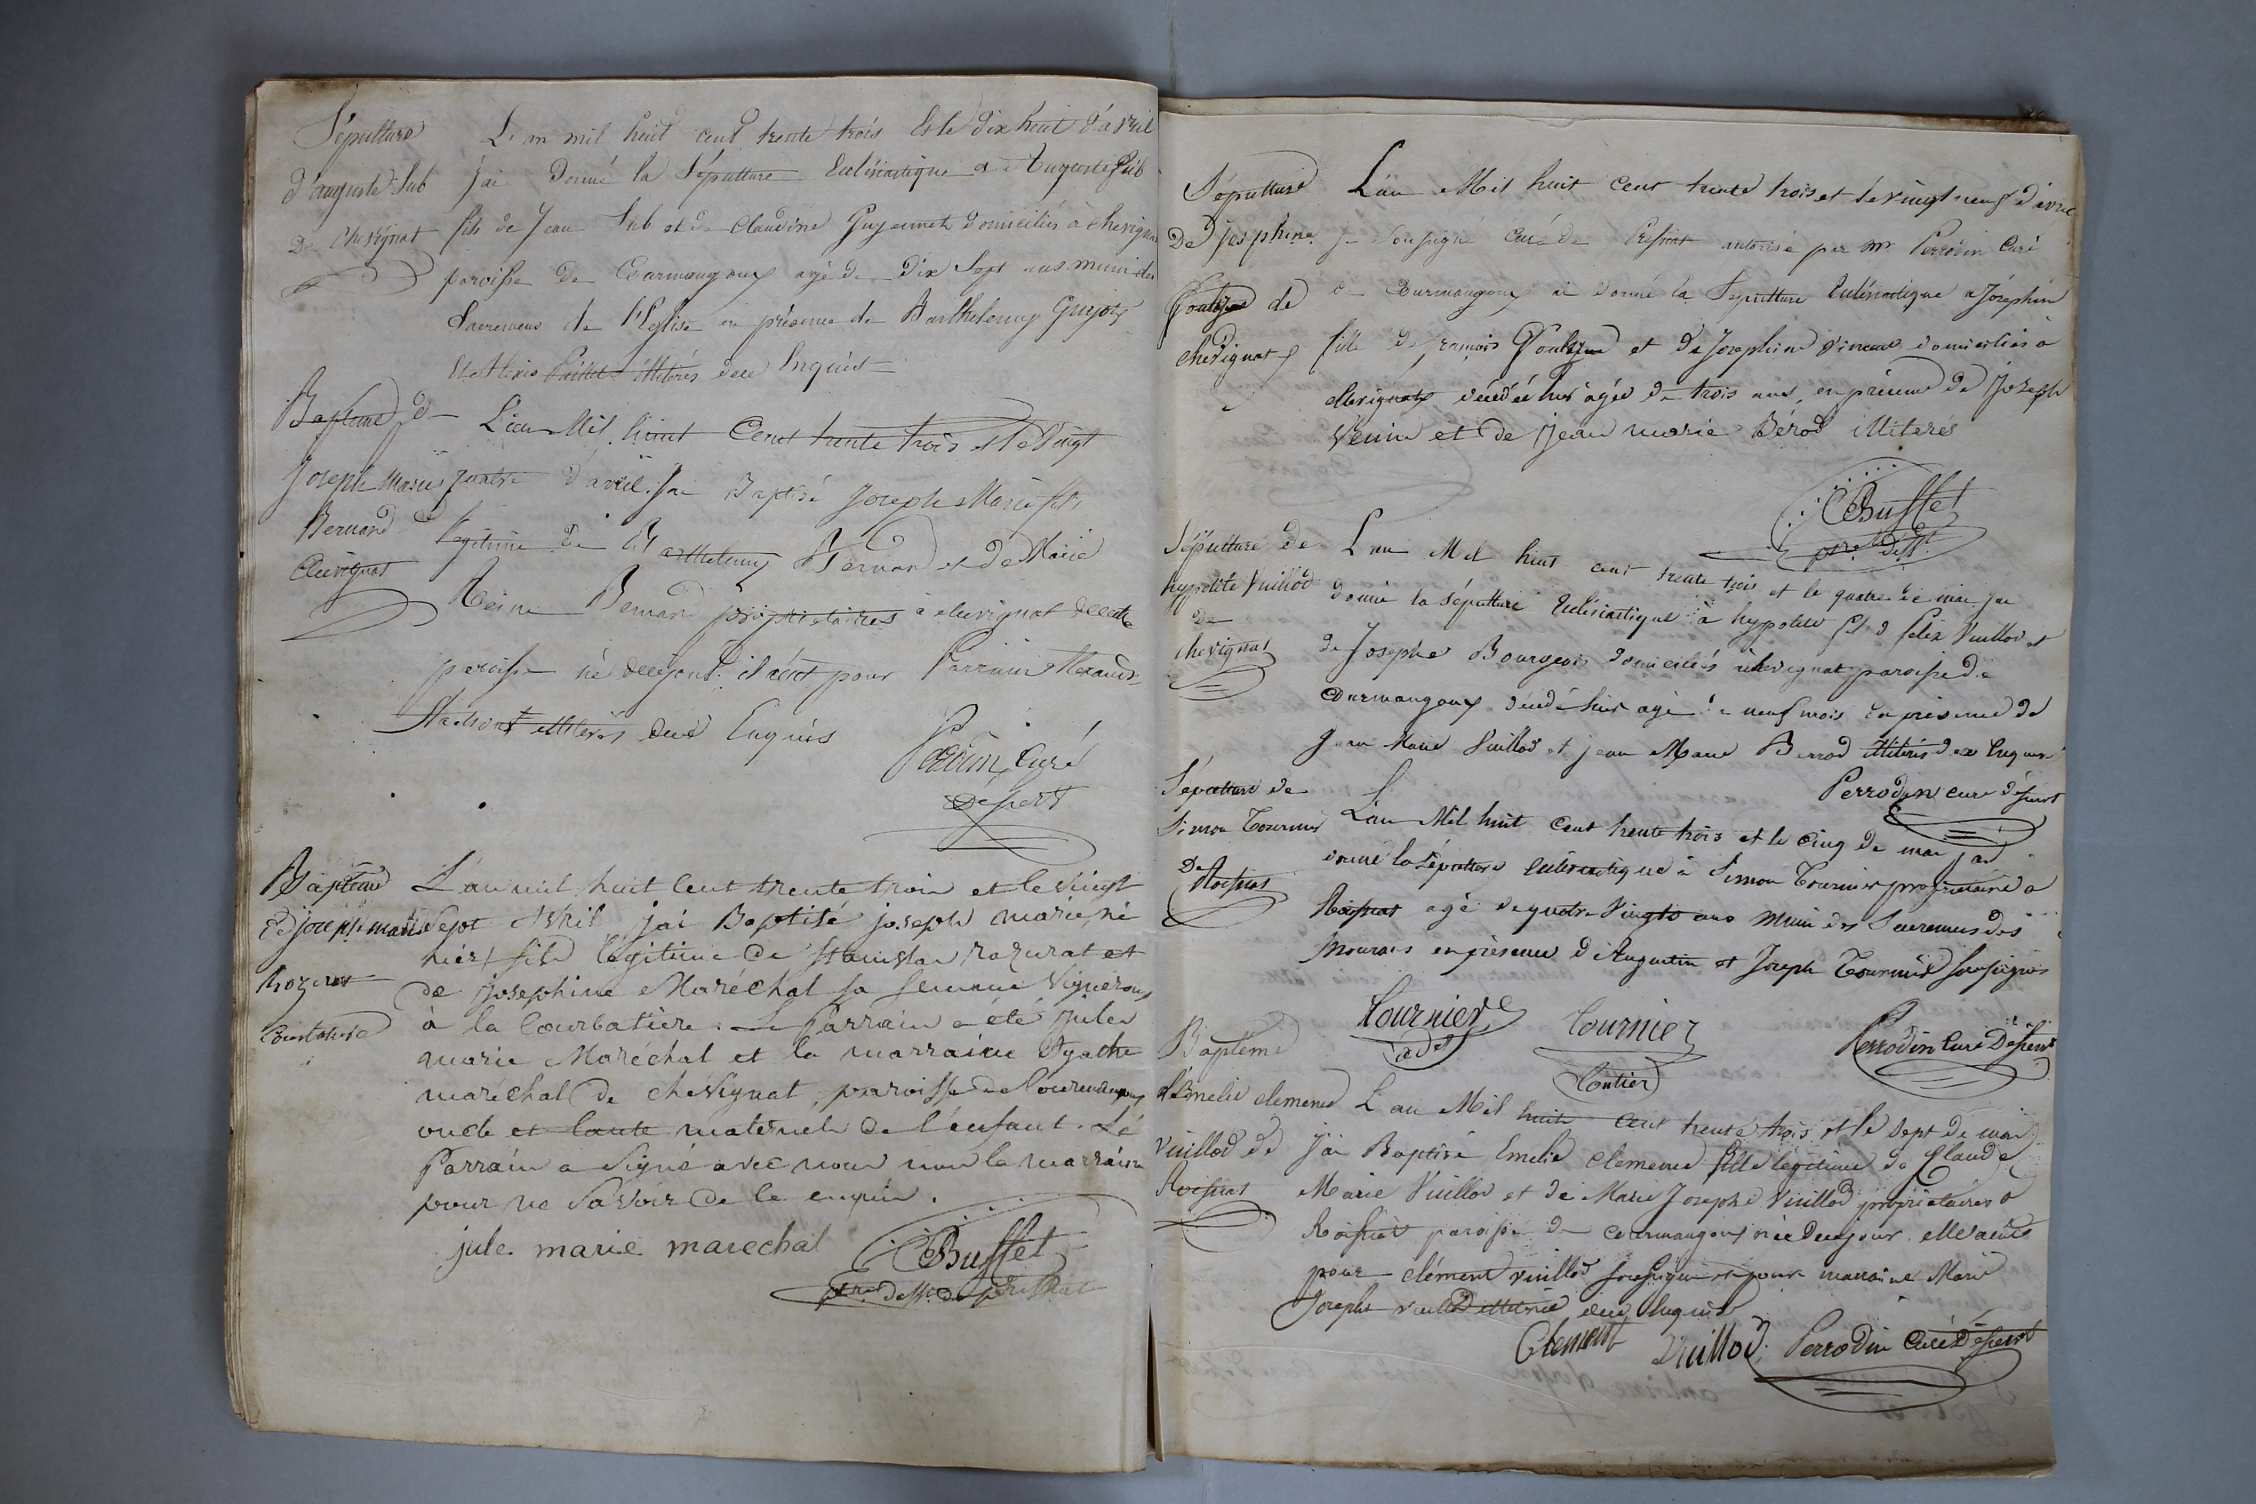 Sépulture
d'auguste Sub
De chevignat
L'an mil huit cent trente trois Et le dix huit d'avril
j'ai donné la Sépulture Ecclésiastique a Auguste Sub
fils de Jean Sub et de Claudine Guyennet domiciliés à chevignat
paroisse de Courmangoux agé de dix Sept ans muni des
Sacremens de l'Eglise en présence de Barthelemy Guyot
Et Alexis illiterés de ce Enquis
Baptême de
Joseph Marie
Bernard
Chevignat
L'an Mil huit Cent trente trois et le Vingt
quatre d'avril j'ai Baptisé Joseph Marie fils
légitime de Barthelemy Bernard et de Marie
Reine Bernard propriétaires à chevignat de cette
paroisse né ce jour il a eut pour Parrain
illiterés de ce Enquis
Perrodin Curé
Desserv
Baptême
de joseph marie
rozurat
Courbatière
L'an mil huit Cent trente trois et le vingt
Sept Avril j'ai Baptisé joseph marie, né
hier, fils légitime de Stanislas rozurat et
de josephine Maréchal sa femme Vignerons
à la Courbatière. Le Parrain a été jules
marie Maréchal et la marraine Agathe
maréchal de chevignat, paroisse de Courmangoux
oncle et tante maternels de l'enfant. Le
Parrain a Signé avec nous non la marraine
pour ne Savoir de ce enquise.
jule marie marechal
CBuffet
ptre dess. de pressiat
Sépulture
De josephine
de
chevignat
L'an Mil huit Cent trente trois et le vingt neuf d'avril
je Soussigné Curé de Pressiat autorisé par Mr Perrodin Curé
de Courmangoux ai donné la Sépulture Ecclésiastique a Joséphine
fille de françois et de Josephine domiciliés a
chevignat décédée hier agée de trois ans, en présence de Joseph
et de Jean marie Bérod illiterés
CBuffet
ptre Desst
Sépulture de
hypolite Vuillod
De
chevignat
L'an Mil huit cent trente trois et le quatre de mai j'ai
donné la Sépulture Ecclésiastique à hypolite fils d felix Vuillod et
de Josephe Bourgeois domiciliés à chevignat paroisse de
Courmangoux décédé hier agé de neuf mois En présence de
Jean Marie Vuillod et jean Marie Berrod illiterés de ce Enquis
Perrodin curé desservt
Sépulture de
Simon Tournier
De
Roissiat
L'an Mil huit Cent trente trois et le Cinq de mai j'ai
donné la Sépulture Ecclésiastique à Simon Tournier propriétaire a
Roissiat agé de quatre Vingts ans muni des Sacremens des
Mourans en présence d'Augustin et Joseph Tournier soussignés
Tournier
Tournier
Perrodin Curé Desservt
Baptême
d'Emelie clemence
Vuillod de
Roissiat
L'an Mil huit Cent trente trois et le Sept de mai
j'ai Baptisé Emelie clemence fille légitime de Claude
Marie Vuillod et de Marie Josephe Vuillod propriétaires a
Roissiat paroisse de Courmangoux née ce jour elle a eut
pour clément Vuillod soussigné et pour marraine Marie
Josephe illiterée de ce Enquise
Clement Vuillod
Perrodin Curé Desservt